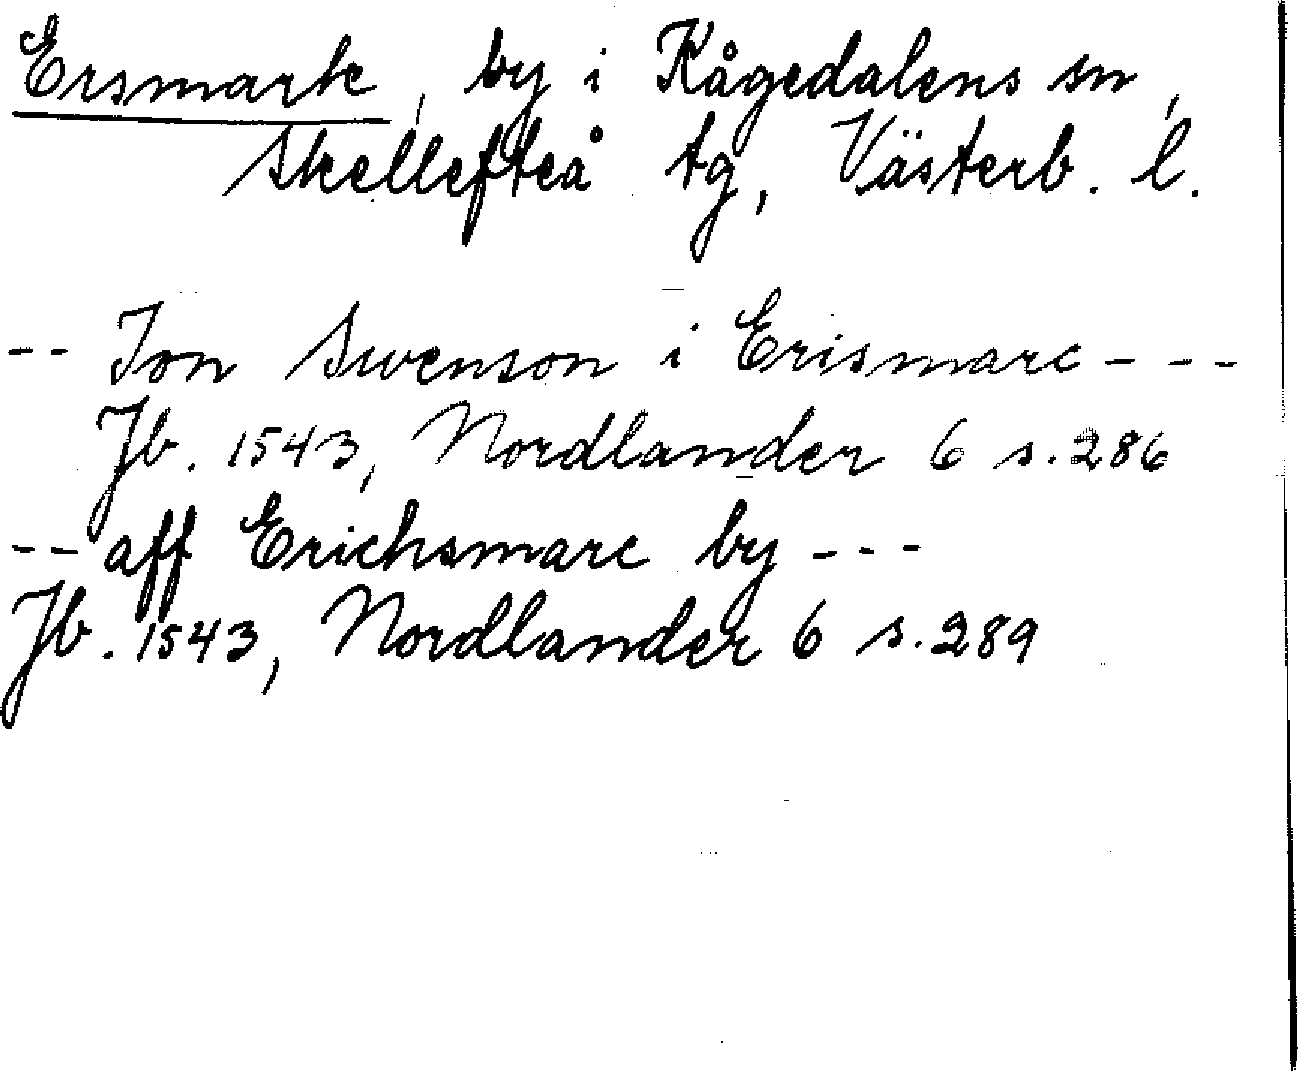 Ersmark, by i Kågedalens sn,
Skellefteå tg, Västerb. l.
-- Jon Swenson i Erismarc ---
Jb. 1543, Nordlander 6 s. 286
-- aff Erichsmarc by ---
Jb. 1543, Nordlander 6 s. 289